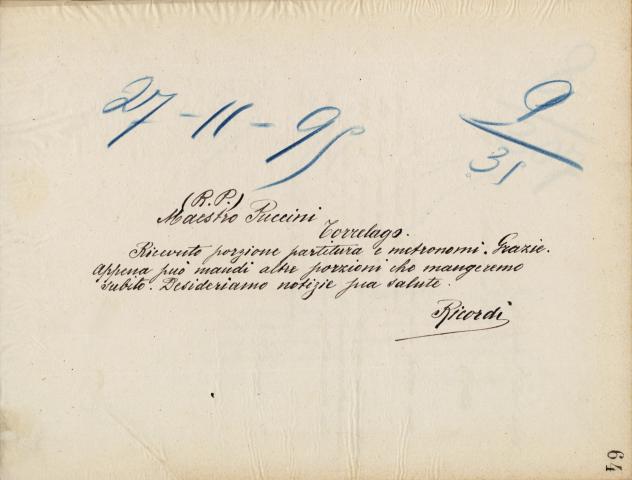 27-11-95
9/31
(R.P.)
Maestro Puccini
Torrelago.
Ricevuto porzione partitura e metronomi. Grazie.
Appena può mandi altre porzioni che mangeremo
subito. Desideriamo notizie sua salute.
Ricordi
64